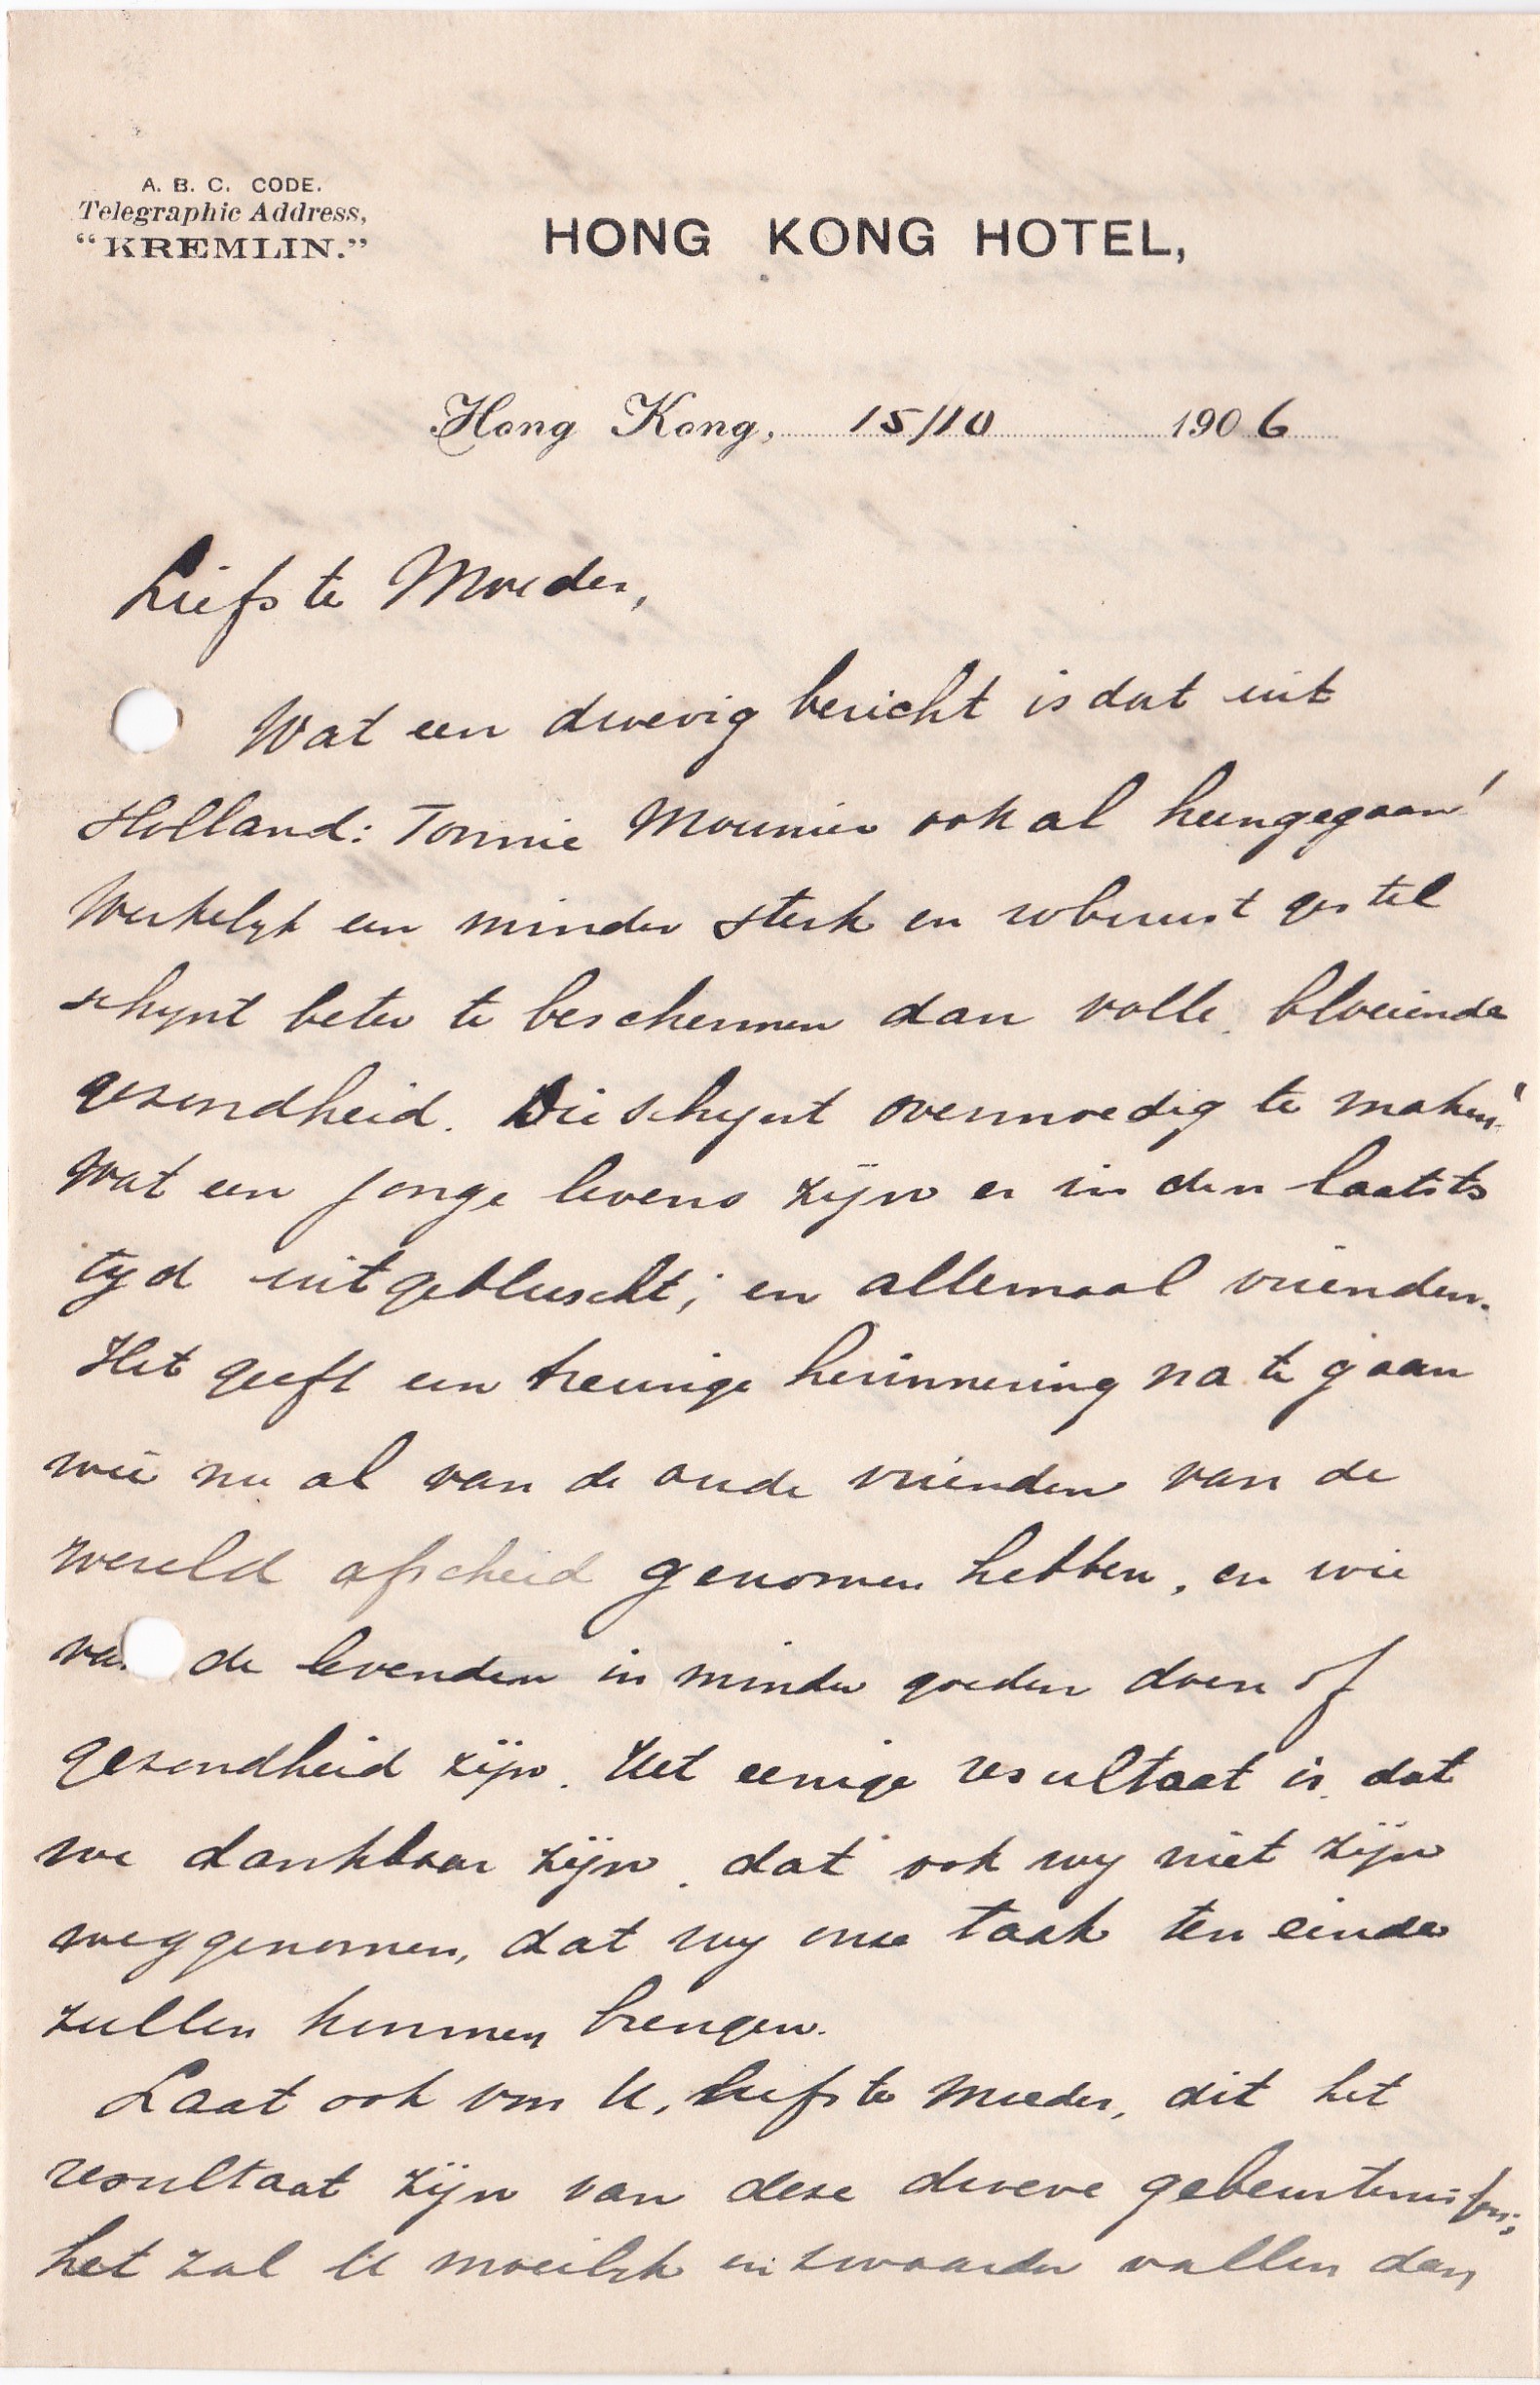 A. B. C. CODE.
Telegraphic Address,
"KREMLIN."
HONG KONG HOTEL,
Hong Kong, 15/10 1906
Liefste Moeder,
Wat een droevig bericht is dat uit
Holland: Tonnie Mounier ook al heengegaan!
Werkelyk een minder sterk en robuust gestel
schynt beter te beschermen dan volle, bloeiende
gezondheid. Die schynt overmoedig te maken!
Wat een jonge levens zijn er in den laatste
tyd uitgebluscht; en allemaal vrienden.
Het geeft een treurige herinnering na te gaan
wie nu al van de oude vrienden van de
wereld afscheid genomen hebben, en wie
van de levenden in minder goeden doen of
gezondheid zijn. Het eenige resultaat is, dat
we dankbaar zijn, dat ook wy niet zijn
weggenomen, dat wy onze taak ten einde
zullen kunnen brengen.
Laat ook voor U, liefste Moeder, dit het
resultaat zijn van deze droeve gebeurtenissen;
het zal U moeilyk en zwaarder vallen dan